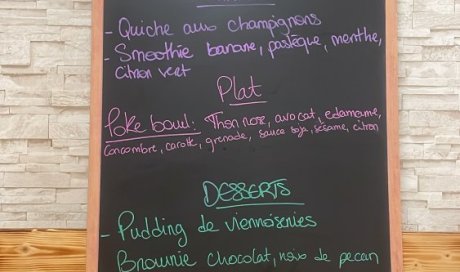 - Quiche aux champignons
- Smoothie banane, pastèque, menthe,
citron vert
Plat
Poke bowl : Thon rose, avocat, edamame,
concombre, carotte, grenade, sauce soja, sésame, citron
DESSERTS
- Pudding de viennoiseries
Brownie chocolat, noix de pecan